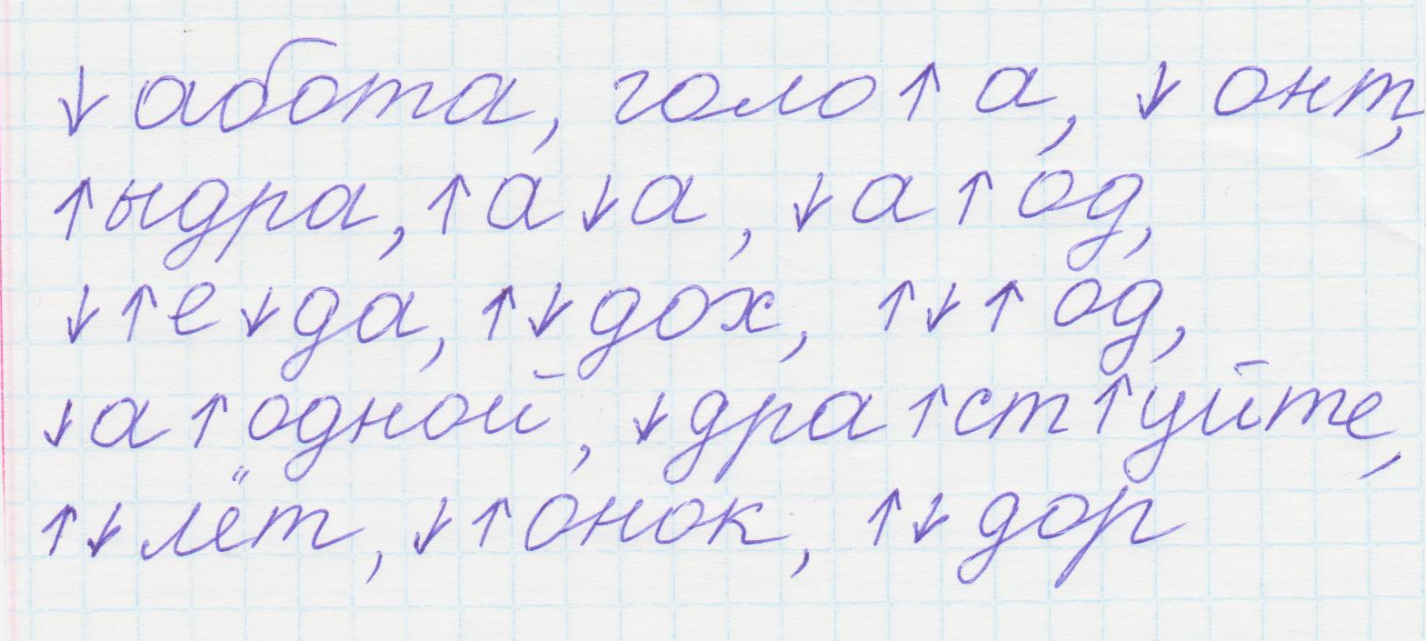 ↓абота, голо↑а, ↓онт,
↑ыдра, ↑а↓а, ↓а↑од,
↓↑е↓да, ↑↓дох, ↑↓↑од,
↓а↑одной, ↓дра↑ст↑уйте,
↑↓лёт, ↓↑онок, ↑↓дор